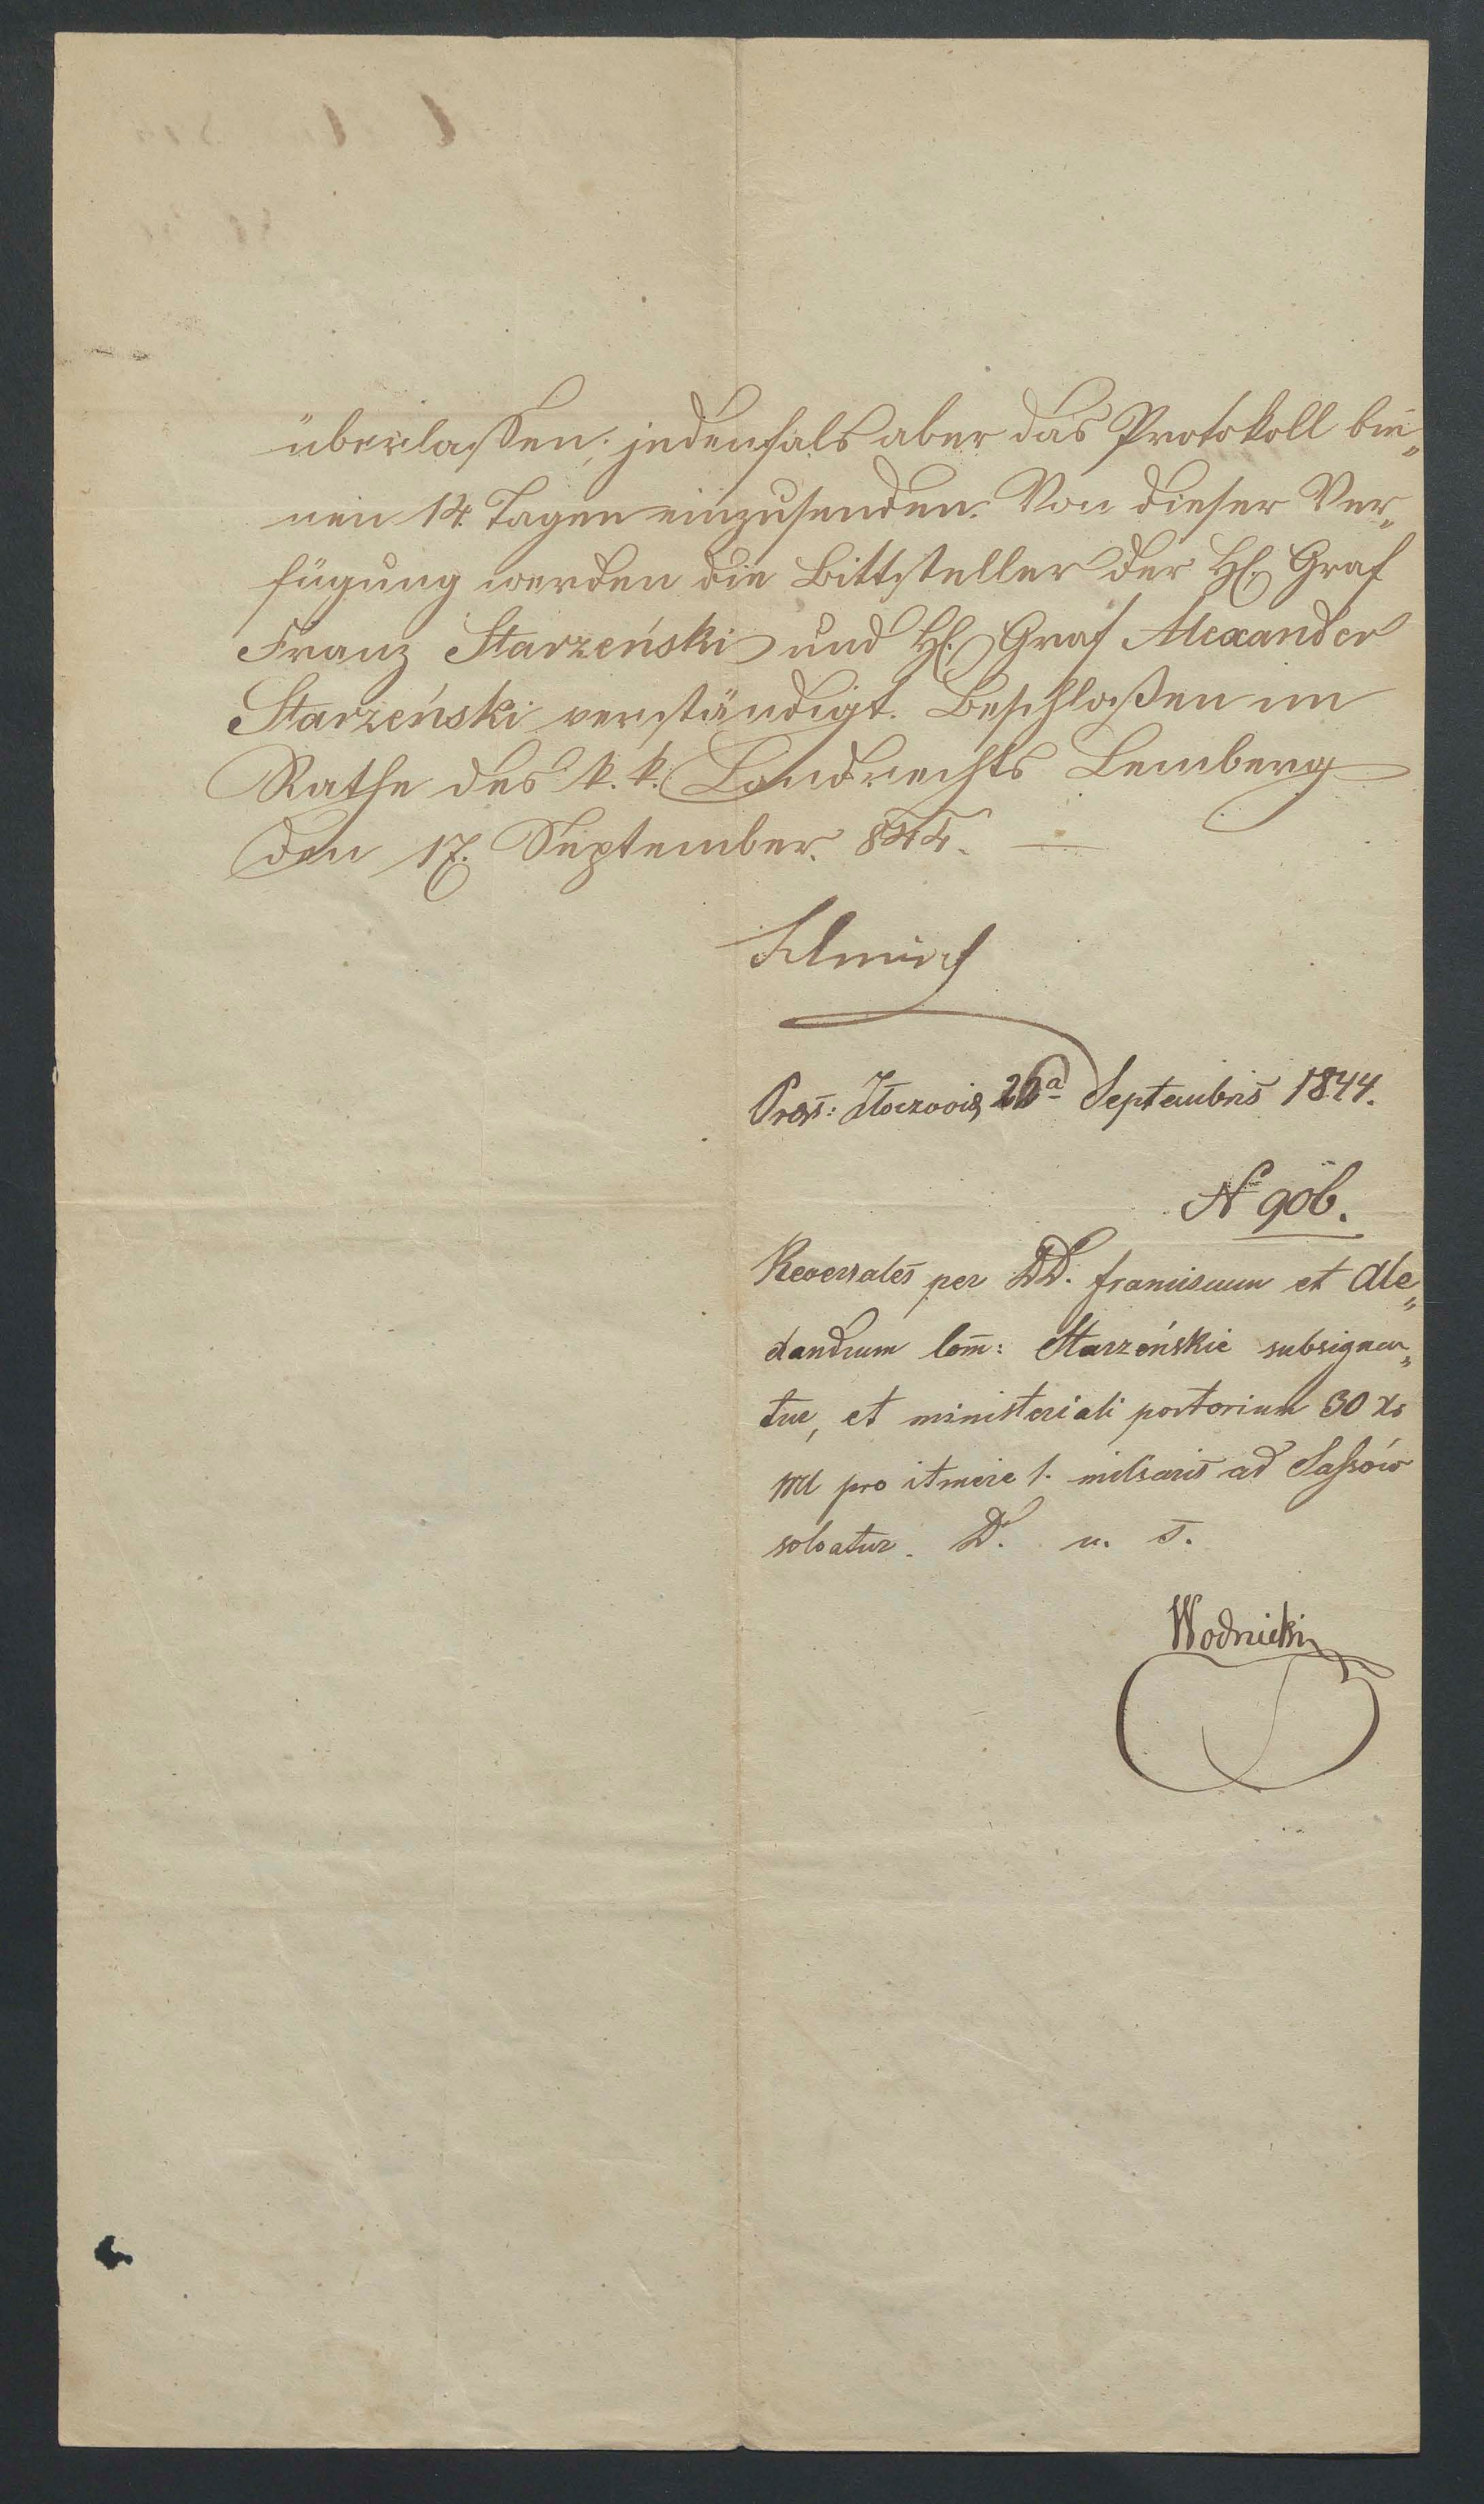 überlaßen; jedenfals aber das Protokoll bin„
nen 14 Tagen einzusenden. Von dieser Ver„
fügung werden die Bittsteller der H. Graf
Franz Starzeński und H. Graf Alexander
Starzeński verständigt. Beschloßen im
Rathe des k. k. Landrechts Lemberg
den 17. September 844.
Præs: Złoczoviæ 22ª Septembris 1844.
Nr 906.
Reversales per DD. Franciscum et Ale„
xandrum Com: Starzeńskie subsignan„
tur, et ministeriali portorium 30 xr
pro itinere 1. miliaris ad Saßów
solvatur. D. u. s.
Wodnicki